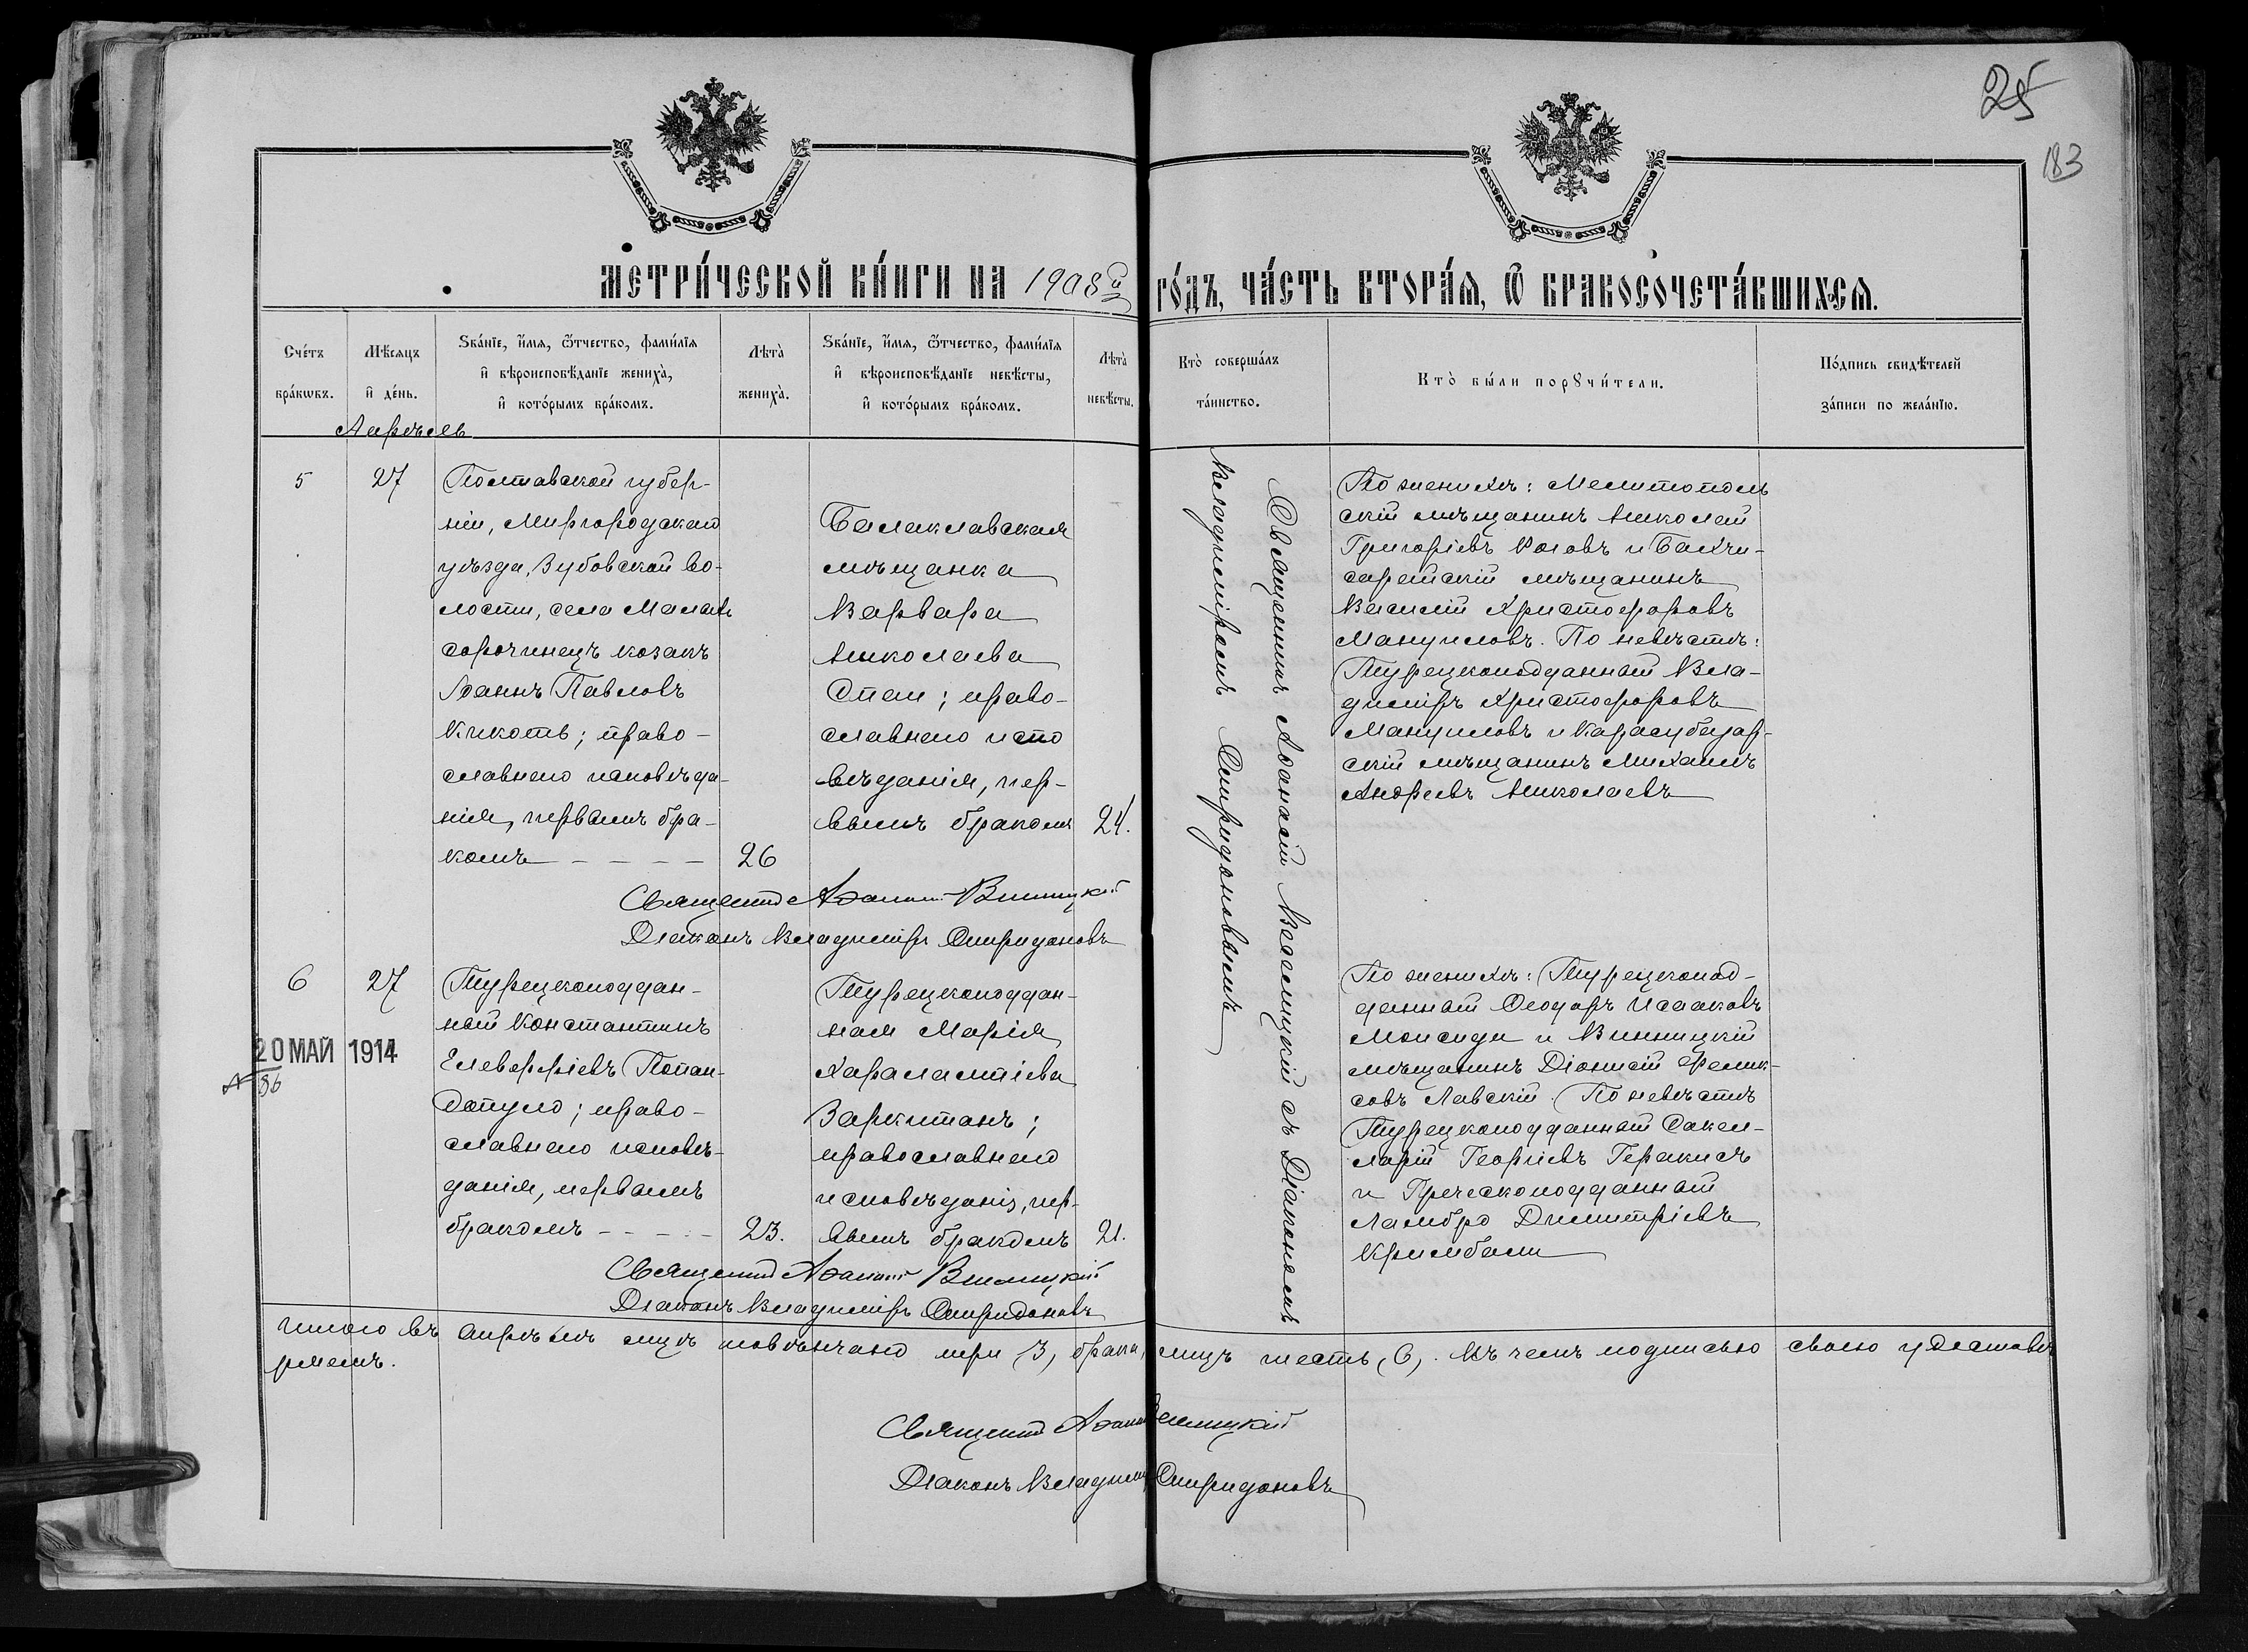 25
183
МЕТРИ́ЧЕСКОЙ КНИ́ГИ НА 1908й
ГО́ДЪ, ЧА́СТЬ ВТОРА́Я, Ѿ БРАКОСОЧЕТА́ВШИХСЯ.
Сче́тъ
бра́кѡвъ.
Мѣ́сяцъ
и҆ де́нь.
Ѕва́нїе, и҆́мя, ѻ҆́тчество, фами́лїя
и҆ вѣроисповѣ́данїе жениха̀,
и҆ кото́рымъ бра́комъ.
Лѣта̀
жениха̀.
Ѕва́нїе, и҆́мя, ѻ҆́тчество, фами́лїя
и҆ вѣроисповѣ́данїе невѣ́сты,
и҆ кото́рымъ бра́комъ.
Лѣта̀
невѣ́сты.
Кто̀ соверша́лъ
та́инство.
Кто̀ бы́ли порꙋчи́тели.
По́дпись свидѣ́телей
за́писи по жела́нїю.
Апрѣль
5
27
Полтавской губер-
нiи, Миргородскаго
уѣзда, Зубовской во-
лости, села Малыхъ
сорочинецъ козакъ
Іоаннъ Павловъ
Кикоть; право-
славнаго исповѣда-
нія, первымъ бра-
комъ - - - -
26
Балаклавская
мѣщанка
Варвара
Николаева
Спаи; право-
славнаго испо
вѣданія, пер-
вымъ бракомъ
24.
Священникъ Аѳанасій Веселицкій съ Діакономъ
Владиміромъ Спиридоновымъ
По женихѣ: Мелитополь
скій мѣщанинъ Николай
Григоріевъ Котовъ и Бахчи-
сарайскій мѣщанинъ
Василій Христофоровъ
Мануиловъ. По невѣстѣ:
Турецкоподданный Вла-
диміръ Христофоровъ
Мануиловъ и Карасубазар-
скій мѣщанинъ Михаилъ
Андреевъ Николаевъ
Священник Аѳанасій
Діаконъ Владиміръ Спиридоновъ
6
27
20 МАЙ 1914
Турецкоподдан-
ный Константинъ
Елевѳеріевъ Попан-
допуло; право-
славнаго исповѣ-
данія, первымъ
бракомъ - - - -
23.
Турецкоподдан-
ная Марія
Харалампіева
Заркитанъ;
православнаго
исповѣданія, пер-
вымъ бракомъ
21.
По женихѣ: Турецкопод-
данный Ѳеодоръ Исааковъ
Моисиди и Винницкій
мѣщанинъ Діонисій Фелик-
совъ Лавскій. По невѣстѣ
Турецкоподданный Сакел-
ларій Георгіевъ Геракисъ
и Греческоподданный
Ламбро Димитріевъ
Кримбали
Священник Аѳанасій
Діаконъ Владиміръ Спиридоновъ
Итого въ Апрѣлѣ мцѣ повѣнчано три (3) брака, лицъ шесть (6). Въ чемъ подписью своею удостовѣ
ряемъ.
Священник Аѳанасій
Діаконъ Владиміръ Спиридоновъ